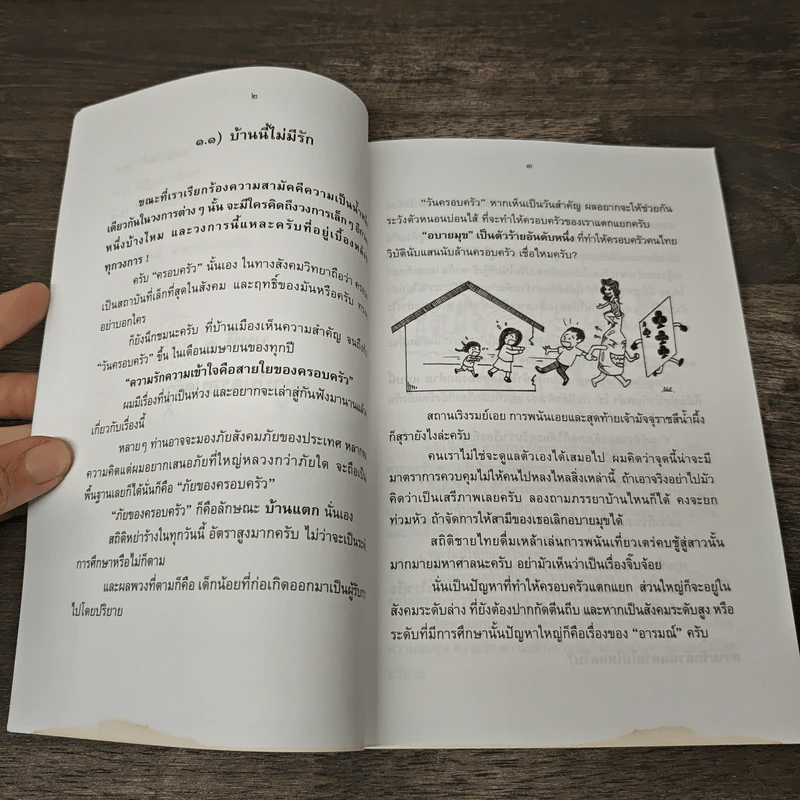 ๒
๑.๑) บ้านนี้ไม่มีรัก
ขณะที่เราเรียกร้องความสามัคคีความเป็นน้ำหนึ่ง
เดียวกันในวงการต่าง ๆ นั้น จะมีใครคิดถึงวงการเล็ก ๆ อีก
หนึ่งบ้างไหม และวงการนี้แหละครับที่อยู่เบื้องหลัง
ทุกวงการ !
ครับ “ครอบครัว” นั้นเอง ในทางสังคมวิทยาถือว่า
เป็นสถาบันที่เล็กที่สุดในสังคม และฤทธิ์ของมันหรือครับ
อย่าบอกใคร
ก็ยังนึกชมนะครับ ที่บ้านเมืองเห็นความสำคัญ
“วันครอบครัว” ขึ้น ในเดือนเมษายนของทุกปี
“ความรักความเข้าใจคือสายใยของครอบครัว”
ผมมีเรื่องที่น่าเป็นห่วง และอยากจะเล่าสู่กันฟังมานานแล้ว
เกี่ยวกับเรื่องนี้
หลายๆ ท่านอาจจะมองภัยสังคมภัยของประเทศ
ความคิดแต่ผมอยากเสนอภัยที่ใหญ่หลวงกว่าภัยใด จะถือเป็น
พื้นฐานเลยก็ได้นั่นก็คือ “ภัยของครอบครัว”
“ภัยของครอบครัว” ก็คือลักษณะ บ้านแตก นั่นเอง
สถิติหย่าร้างในทุกวันนี้ อัตราสูงมากครับ ไม่ว่าจะเป็น
การศึกษาหรือไม่ก็ตาม
และผลพวงที่ตามก็คือ เด็กน้อยที่ก่อเกิดออกมาเป็นผู้รับ
ไปโดยปริยาย
๓
“วันครอบครัว” หากเห็นเป็นวันสำคัญ ผลอยากจะให้ช่วยกัน
ระวังตัวหนอนบ่อนไส้ ที่จะทำให้ครอบครัวของเราแตกแยกครับ
“อบายมุข” เป็นตัวร้ายอันดับหนึ่ง ที่ทำให้ครอบครัวคนไทย
วิบัตินับแสนนับล้านครอบครัว เชื่อไหมครับ?
สถานเริงรมย์เอย การพนันเอยและสุดท้ายเจ้ามัจจุราชสีน้ำผึ้ง
ก็สุรายังไงล่ะครับ
คนเราไม่ใช่จะดูแลตัวเองได้เสมอไป ผมคิดว่าจุดนี้น่าจะมี
มาตราการควบคุมไม่ให้คนไปหลงไหลสิ่งเหล่านี้ ถ้าเอาจริงอย่าไปมัว
คิดว่าเป็นเสรีภาพเลยครับ ลองถามภรรยาบ้านไหนก็ได้ คงจะยก
ท่วมหัว ถ้าจัดการให้สามีของเธอเลิกอบายมุขได้
สถิติชายไทยดื่มเหล้าเล่นการพนันเที่ยวเตร่คบชู้สู่สาวนั้น
มากมายมหาศาลนะครับ อย่ามัวเห็นว่าเป็นเรื่องจิ๊บจ้อย
นั่นเป็นปัญหาที่ทำให้ครอบครัวแตกแยก ส่วนใหญ่ก็จะอยู่ใน
สังคมระดับล่าง ที่ยังต้องปากกัดตีนถีบ และหากเป็นสังคมระดับสูง หรือ
ระดับที่มีการศึกษานั้นปัญหาใหญ่ก็คือเรื่องของ “อารมณ์” ครับ